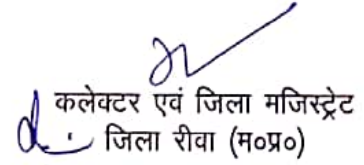 कलेक्टर एवं जिला मजिस्ट्रेट
जिला रीवा (म०प्र०)